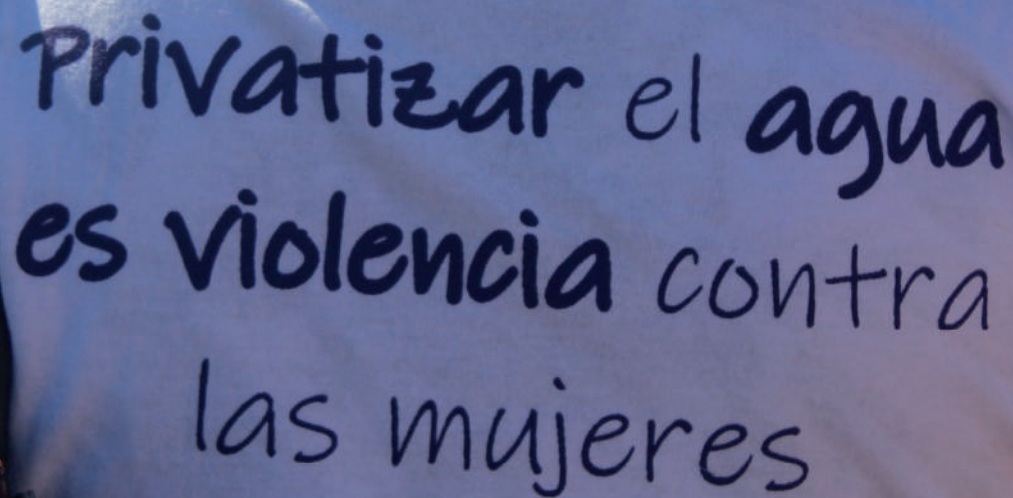 Privatizar el agua
es violencia contra
las mujeres